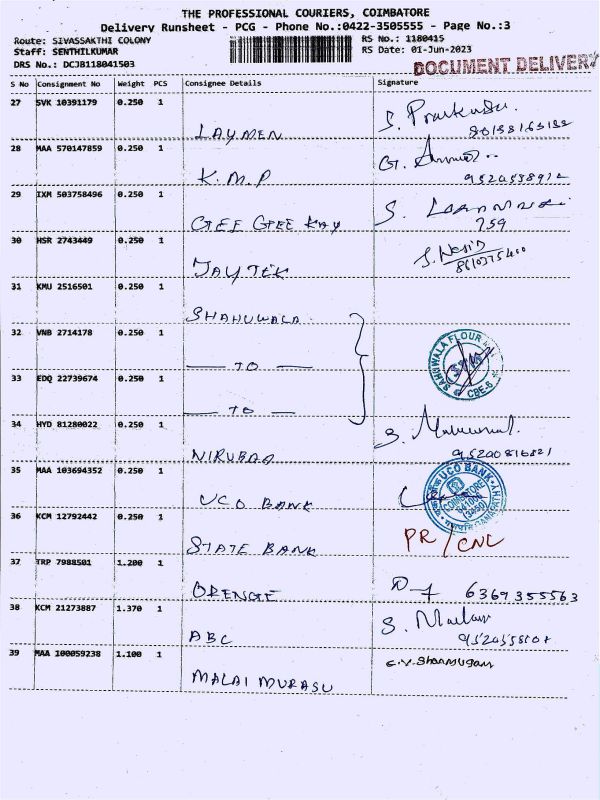 THE PROFESSIONAL COURIERS, COIMBATORE
Delivery Runsheet - PCG - Phone No.:0422-3505555 - Page No.:3
Route: SIVASSAKTHI COLONY RS No.: 1180415
Staff: SENTHILKUMAR RS Date: 01-Jun-2023
DRS No.: DCJB118041503 DOCUMENT DELIVERY
S No Consignment No Weight PCS Consignee Details Signature
27 SVK 10391179 0.250 1
LAYMEN
28 MAA 570147859 0.250 1
K.M.P
29 IXM 503758496 0.250 1
GEE GEE KAY 759
30 HSR 2743449 0.250 1
JAYTEK
31 KMU 2516501 0.250 1
SHAHUWALA
32 VNB 2714178 0.250 1
— TO — SAHUWALA FLOUR CBE-6
33 EDQ 22739674 0.250 1
— TO —
34 HYD 81280022 0.250 1
NIRUBAA
35 MAA 103694352 0.250 1
UCO BANK UCO BANK COIMBATORE GANAPATHY
36 KCM 12792442 0.250 1
STATE BANK PR/CNL
37 TRP 7988501 1.200 1
ORENGE 6369355563
38 KCM 21273887 1.370 1
ABC
39 MAA 100059238 1.100 1 C.V. Shanmugam
MALAI MURASU